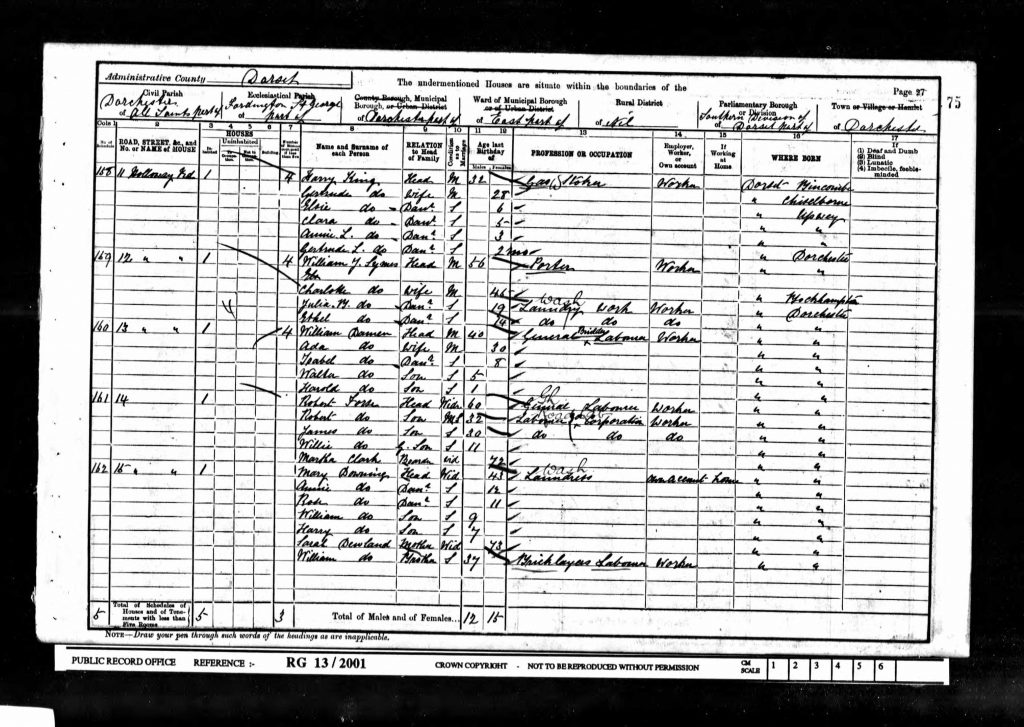 Administrative County Dorset
The undermentioned Houses are situate within the boundaries of the
Page 27
75
Civil Parish
of All Saints part of
Dorchester
Ecclesiastical Parish
of Fordington St George part of
County Borough, Municipal Borough, or Urban District
of Dorchester part of
Ward of Municipal Borough or of Urban District
of East part of
Rural District
of Nil
Parliamentary Borough or Division
of Southern Division of Dorset part of
Town or Village or Hamlet
of Dorchester
Cols 1 2 3 4 5 6 7 8 9 10 11 12 13 14 15 16 17
No. of Schedule
ROAD, STREET, &c., and No. or NAME of HOUSE
HOUSES
Inhabited
Uninhabited
In Occupation
Not in Occupation
Building
Number of Rooms occupied if less than five
Name and Surname of each Person
RELATION to Head of Family
Condition as to Marriage
Age last Birthday of
Males Females
PROFESSION OR OCCUPATION
Employer, Worker, or Own account
If Working at Home
WHERE BORN
If
(1) Deaf and Dumb
(2) Blind
(3) Lunatic
(4) Imbecile, feeble-minded
158 11 Holloway Rd 1 4 Harry King Head M 32 Gas Stoker Worker Dorset Bincombe
Gertrude do Wife M 28 " Chiselborne
Elsie do Daur S 6 " Upwey
Clara do Daur S 5 " "
Annie L. do Daur S 3 " "
Gertrude L. do Daur S 2 mos " Dorchester
159 12 " " 1 4 William J. Symes Head M 56 Porter Worker " "
Charlotte do Wife M 45 " Bockhampton
Julia M. do Daur S 19 Laundry Wash Work Worker " Dorchester
Ethel do Daur S 14 do do do " "
160 13 " " 1 4 William Damen Head M 40 General Labourer Worker " "
Ada do Wife M 30 " "
Isabel do Daur S 8 " "
Walter do Son S 5 " "
Harold do Son S 1 " "
161 14 1 Robert Head Widr 60 General Labourer Worker " "
Robert do Son S 32 Labourer Corporation Worker " "
James do Son S 30 do do do " "
Willie do G. Son S 11 " "
Martha Clark Boarder Wid 72 " "
162 15 " " 1 Mary Downing Head Wid 43 Laundress Wash Own account Home " "
Annie do Daur S 12 " "
Rose do Daur S 11 " "
William do Son S 9 " "
Harry do Son S 7 " "
Sarah Dewland Mother Wid 73 " "
William do Brother S 37 Bricklayers Labourer Worker " "
5 Total of Schedules of Houses and of Tenements with less than Five Rooms 5 3 Total of Males and of Females... 12 15
NOTE—Draw your pen through such words of the headings as are inapplicable.
PUBLIC RECORD OFFICE REFERENCE :- RG 13/2001 CROWN COPYRIGHT - NOT TO BE REPRODUCED WITHOUT PERMISSION CM SCALE 1 2 3 4 5 6